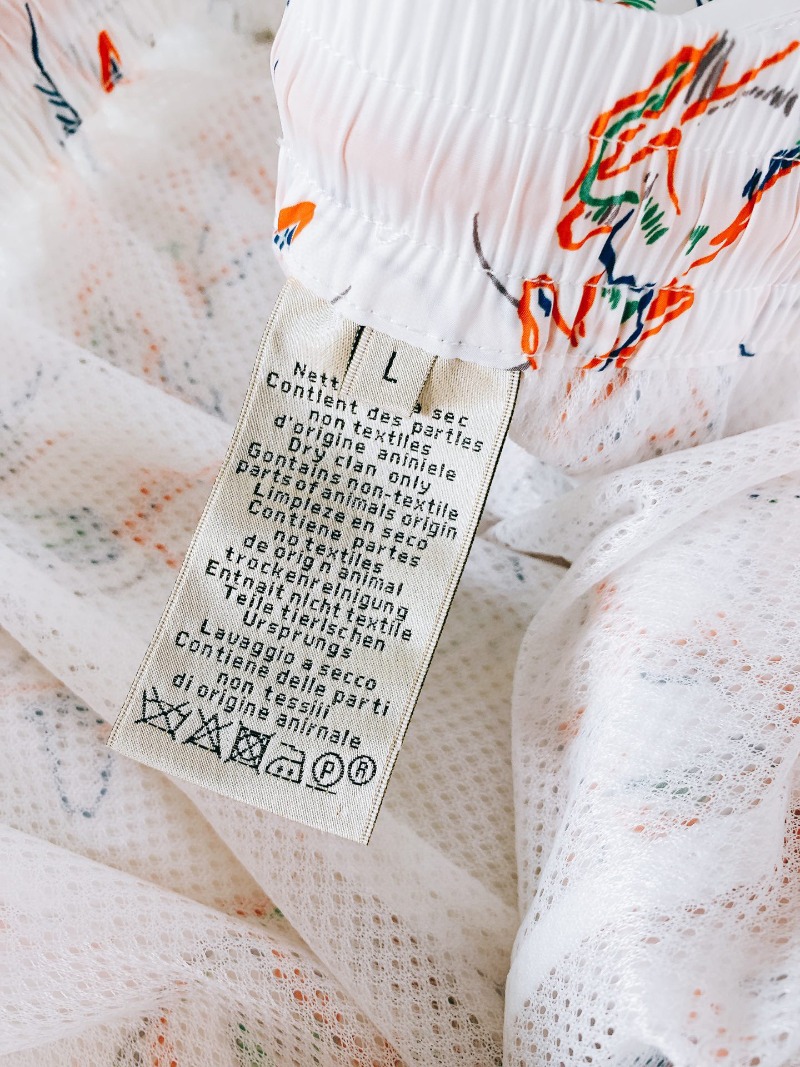 L
Nett à sec
Contient des parties
non textiles
d'origine aniniele
Dry clan only
Gontains non-textile
parts of animals origin
Limpieze en seco
Contiene partes
no textiles
de orign animal
trockenreinigung
Entnait nicht textile
Teile tierischen
Ursprungs
Lavaggio a secco
Contiene delle parti
non tessili
di origine anirnale
P R